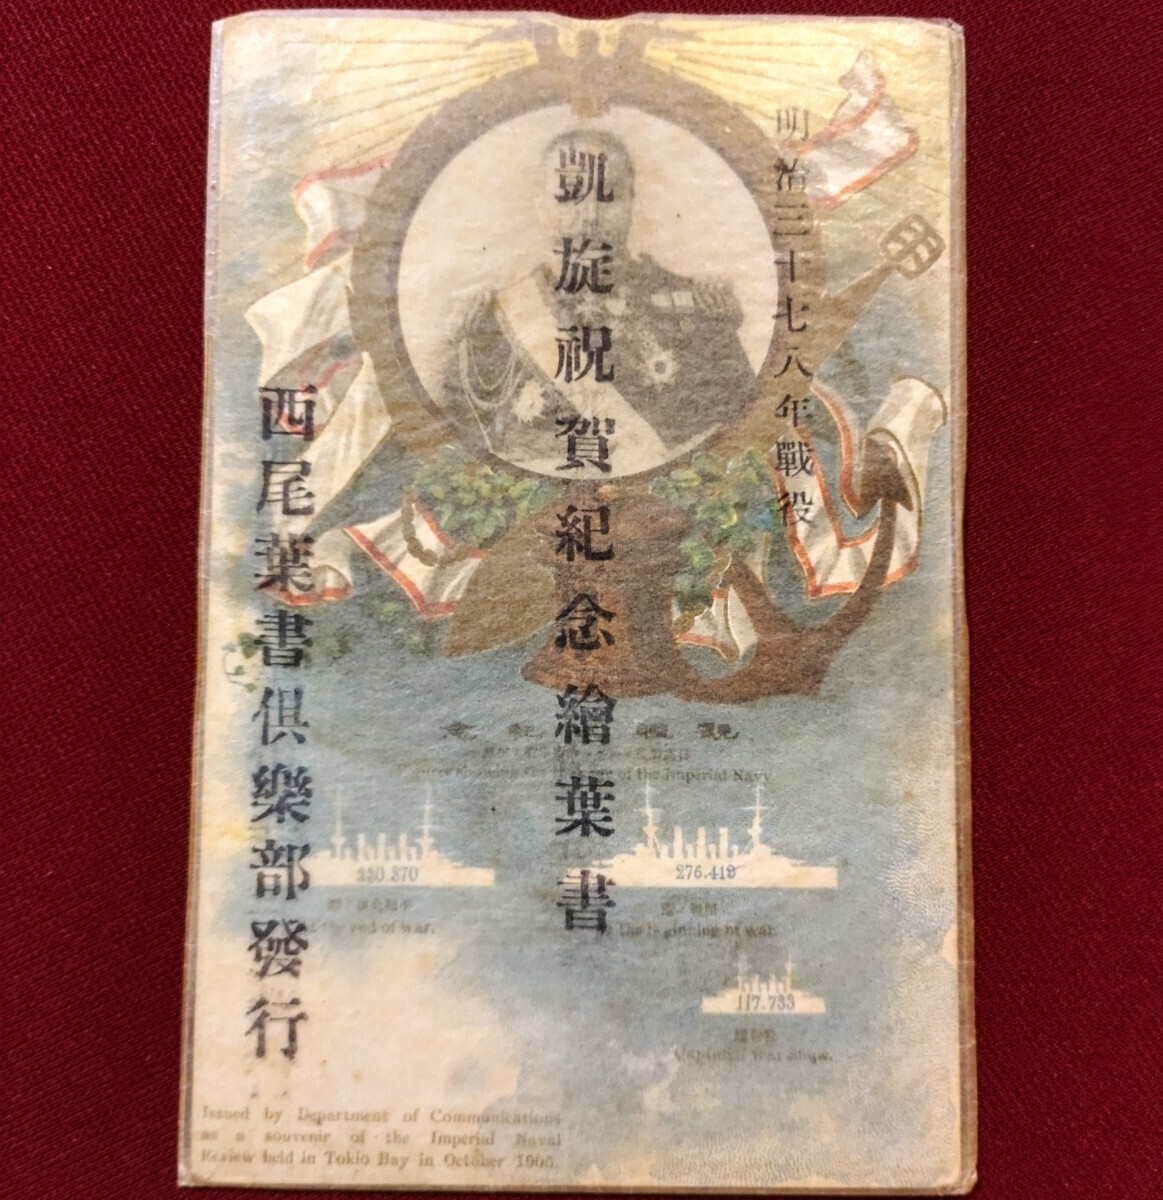 明治三十七八年戰役
凱旋祝賀紀念繪葉書
西尾葉書倶樂部發行
念紀艦觀
of the Imperial Navy
230.370
276.419
the end of war.
the beginning of war.
117.733
Captured war ships.
Issued by Department of Communications
as a souvenir of the Imperial Naval
Review held in Tokio Bay in October 1905.